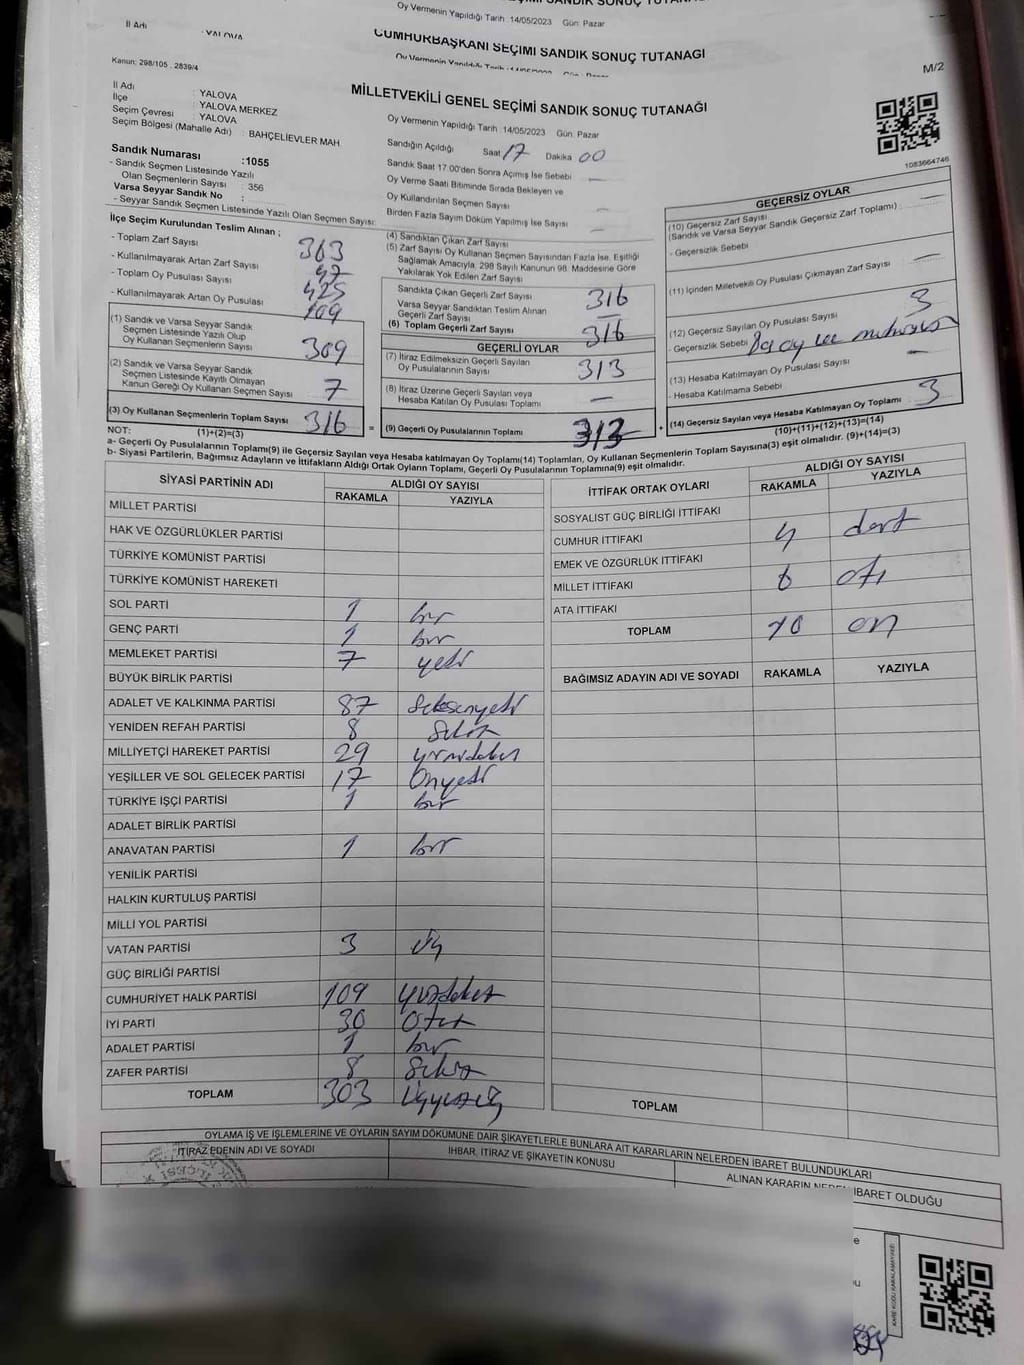 Oy Vermenin Yapıldığı Tarih :14/05/2023 Gün: Pazar
İl Adı : YALOVA
CUMHURBAŞKANI SEÇİMİ SANDIK SONUÇ TUTANAĞI
Oy Vermenin Yapıldığı Tarih
Kanun: 298/105 , 2839/4
M/2
MİLLETVEKİLİ GENEL SEÇİMİ SANDIK SONUÇ TUTANAĞI
İl Adı : YALOVA
İlçe : YALOVA MERKEZ
Seçim Çevresi : YALOVA
Seçim Bölgesi (Mahalle Adı) : BAHÇELİEVLER MAH
Oy Vermenin Yapıldığı Tarih :14/05/2023 Gün: Pazar
Sandığın Açıldığı Saat 17 Dakika 00
Sandık Saat 17.00'den Sonra Açılmış İse Sebebi —
Oy Verme Saati Bitiminde Sırada Bekleyen ve
Oy Kullandırılan Seçmen Sayısı —
Birden Fazla Sayım Döküm Yapılmış İse Sayısı —
1083664746
Sandık Numarası :1055
- Sandık Seçmen Listesinde Yazılı
Olan Seçmenlerin Sayısı : 356
Varsa Seyyar Sandık No :
- Seyyar Sandık Seçmen Listesinde Yazılı Olan Seçmen Sayısı:
İlçe Seçim Kurulundan Teslim Alınan ;
- Toplam Zarf Sayısı 363
- Kullanılmayarak Artan Zarf Sayısı 47
- Toplam Oy Pusulası Sayısı 425
- Kullanılmayarak Artan Oy Pusulası 109
(1) Sandık ve Varsa Seyyar Sandık
Seçmen Listesinde Yazılı Olup
Oy Kullanan Seçmenlerin Sayısı 309
(2) Sandık ve Varsa Seyyar Sandık
Seçmen Listesinde Kayıtlı Olmayan
Kanun Gereği Oy Kullanan Seçmen Sayısı 7
(3) Oy Kullanan Seçmenlerin Toplam Sayısı 316
(1)+(2)=(3)
(4) Sandıktan Çıkan Zarf Sayısı
(5) Zarf Sayısı Oy Kullanan Seçmen Sayısından Fazla İse, Eşitliği
Sağlamak Amacıyla, 298 Sayılı Kanunun 98. Maddesine Göre
Yakılarak Yok Edilen Zarf Sayısı
Sandıkta Çıkan Geçerli Zarf Sayısı 316
Varsa Seyyar Sandıktan Teslim Alınan
Geçerli Zarf Sayısı —
(6) Toplam Geçerli Zarf Sayısı 316
GEÇERLİ OYLAR
(7) İtiraz Edilmeksizin Geçerli Sayılan
Oy Pusulalarının Sayısı 313
(8) İtiraz Üzerine Geçerli Sayılan veya
Hesaba Katılan Oy Pusulası Toplamı —
= (9) Geçerli Oy Pusulalarının Toplamı 313 +
GEÇERSİZ OYLAR
(10) Geçersiz Zarf Sayısı
(Sandık ve Varsa Seyyar Sandık Geçersiz Zarf Toplamı) —
- Geçersizlik Sebebi
(11) İçinden Milletvekili Oy Pusulası Çıkmayan Zarf Sayısı —
(12) Geçersiz Sayılan Oy Pusulası Sayısı 3
- Geçersizlik Sebebi
(13) Hesaba Katılmayan Oy Pusulası Sayısı —
- Hesaba Katılmama Sebebi
(14) Geçersiz Sayılan veya Hesaba Katılmayan Oy Toplamı 3
(10)+(11)+(12)+(13)=(14)
NOT:
a- Geçerli Oy Pusulalarının Toplamı(9) ile Geçersiz Sayılan veya Hesaba katılmayan Oy Toplamı(14) Toplamları, Oy Kullanan Seçmenlerin Toplam Sayısına(3) eşit olmalıdır. (9)+(14)=(3)
b- Siyasi Partilerin, Bağımsız Adayların ve İttifakların Aldığı Ortak Oyların Toplamı, Geçerli Oy Pusulalarının Toplamına(9) eşit olmalıdır.
SİYASİ PARTİNİN ADI ALDIĞI OY SAYISI
RAKAMLA YAZIYLA
MİLLET PARTİSİ
HAK VE ÖZGÜRLÜKLER PARTİSİ
TÜRKİYE KOMÜNİST PARTİSİ
TÜRKİYE KOMÜNİST HAREKETİ
SOL PARTİ 1 bir
GENÇ PARTİ 1 bir
MEMLEKET PARTİSİ 7 yedi
BÜYÜK BİRLİK PARTİSİ
ADALET VE KALKINMA PARTİSİ 87 Seksenyedi
YENİDEN REFAH PARTİSİ 8 Sekiz
MİLLİYETÇİ HAREKET PARTİSİ 29 yirmidokuz
YEŞİLLER VE SOL GELECEK PARTİSİ 17 Onyedi
TÜRKİYE İŞÇİ PARTİSİ 1 bir
ADALET BİRLİK PARTİSİ
ANAVATAN PARTİSİ 1 bir
YENİLİK PARTİSİ
HALKIN KURTULUŞ PARTİSİ
MİLLİ YOL PARTİSİ
VATAN PARTİSİ 3 üç
GÜÇ BİRLİĞİ PARTİSİ
CUMHURİYET HALK PARTİSİ 109 yüzdokuz
İYİ PARTİ 30 Otuz
ADALET PARTİSİ 1 bir
ZAFER PARTİSİ 8 Sekiz
TOPLAM 303 üçyüzüç
İTTİFAK ORTAK OYLARI ALDIĞI OY SAYISI
RAKAMLA YAZIYLA
SOSYALİST GÜÇ BİRLİĞİ İTTİFAKI
CUMHUR İTTİFAKI 4 dört
EMEK VE ÖZGÜRLÜK İTTİFAKI
MİLLET İTTİFAKI 6 altı
ATA İTTİFAKI
TOPLAM 10 on
BAĞIMSIZ ADAYIN ADI VE SOYADI RAKAMLA YAZIYLA
TOPLAM
OYLAMA İŞ VE İŞLEMLERİNE VE OYLARIN SAYIM DÖKÜMÜNE DAİR ŞİKAYETLERLE BUNLARA AİT KARARLARIN NELERDEN İBARET BULUNDUKLARI
İTİRAZ EDENİN ADI VE SOYADI
İHBAR, İTİRAZ VE ŞİKAYETİN KONUSU
ALINAN KARARIN NEDEN İBARET OLDUĞU